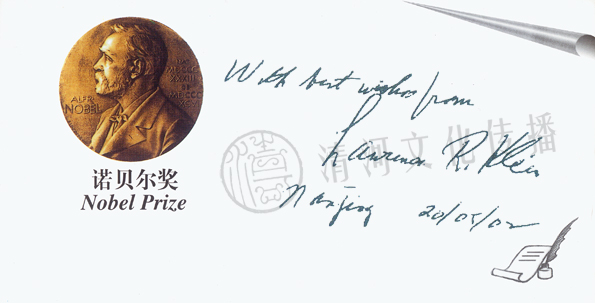 ALFR
NOBEL
诺贝尔奖
Nobel Prize
With best wishes from
Lawrence R. Klein
Nanjing 20/05/02
清河文化传播